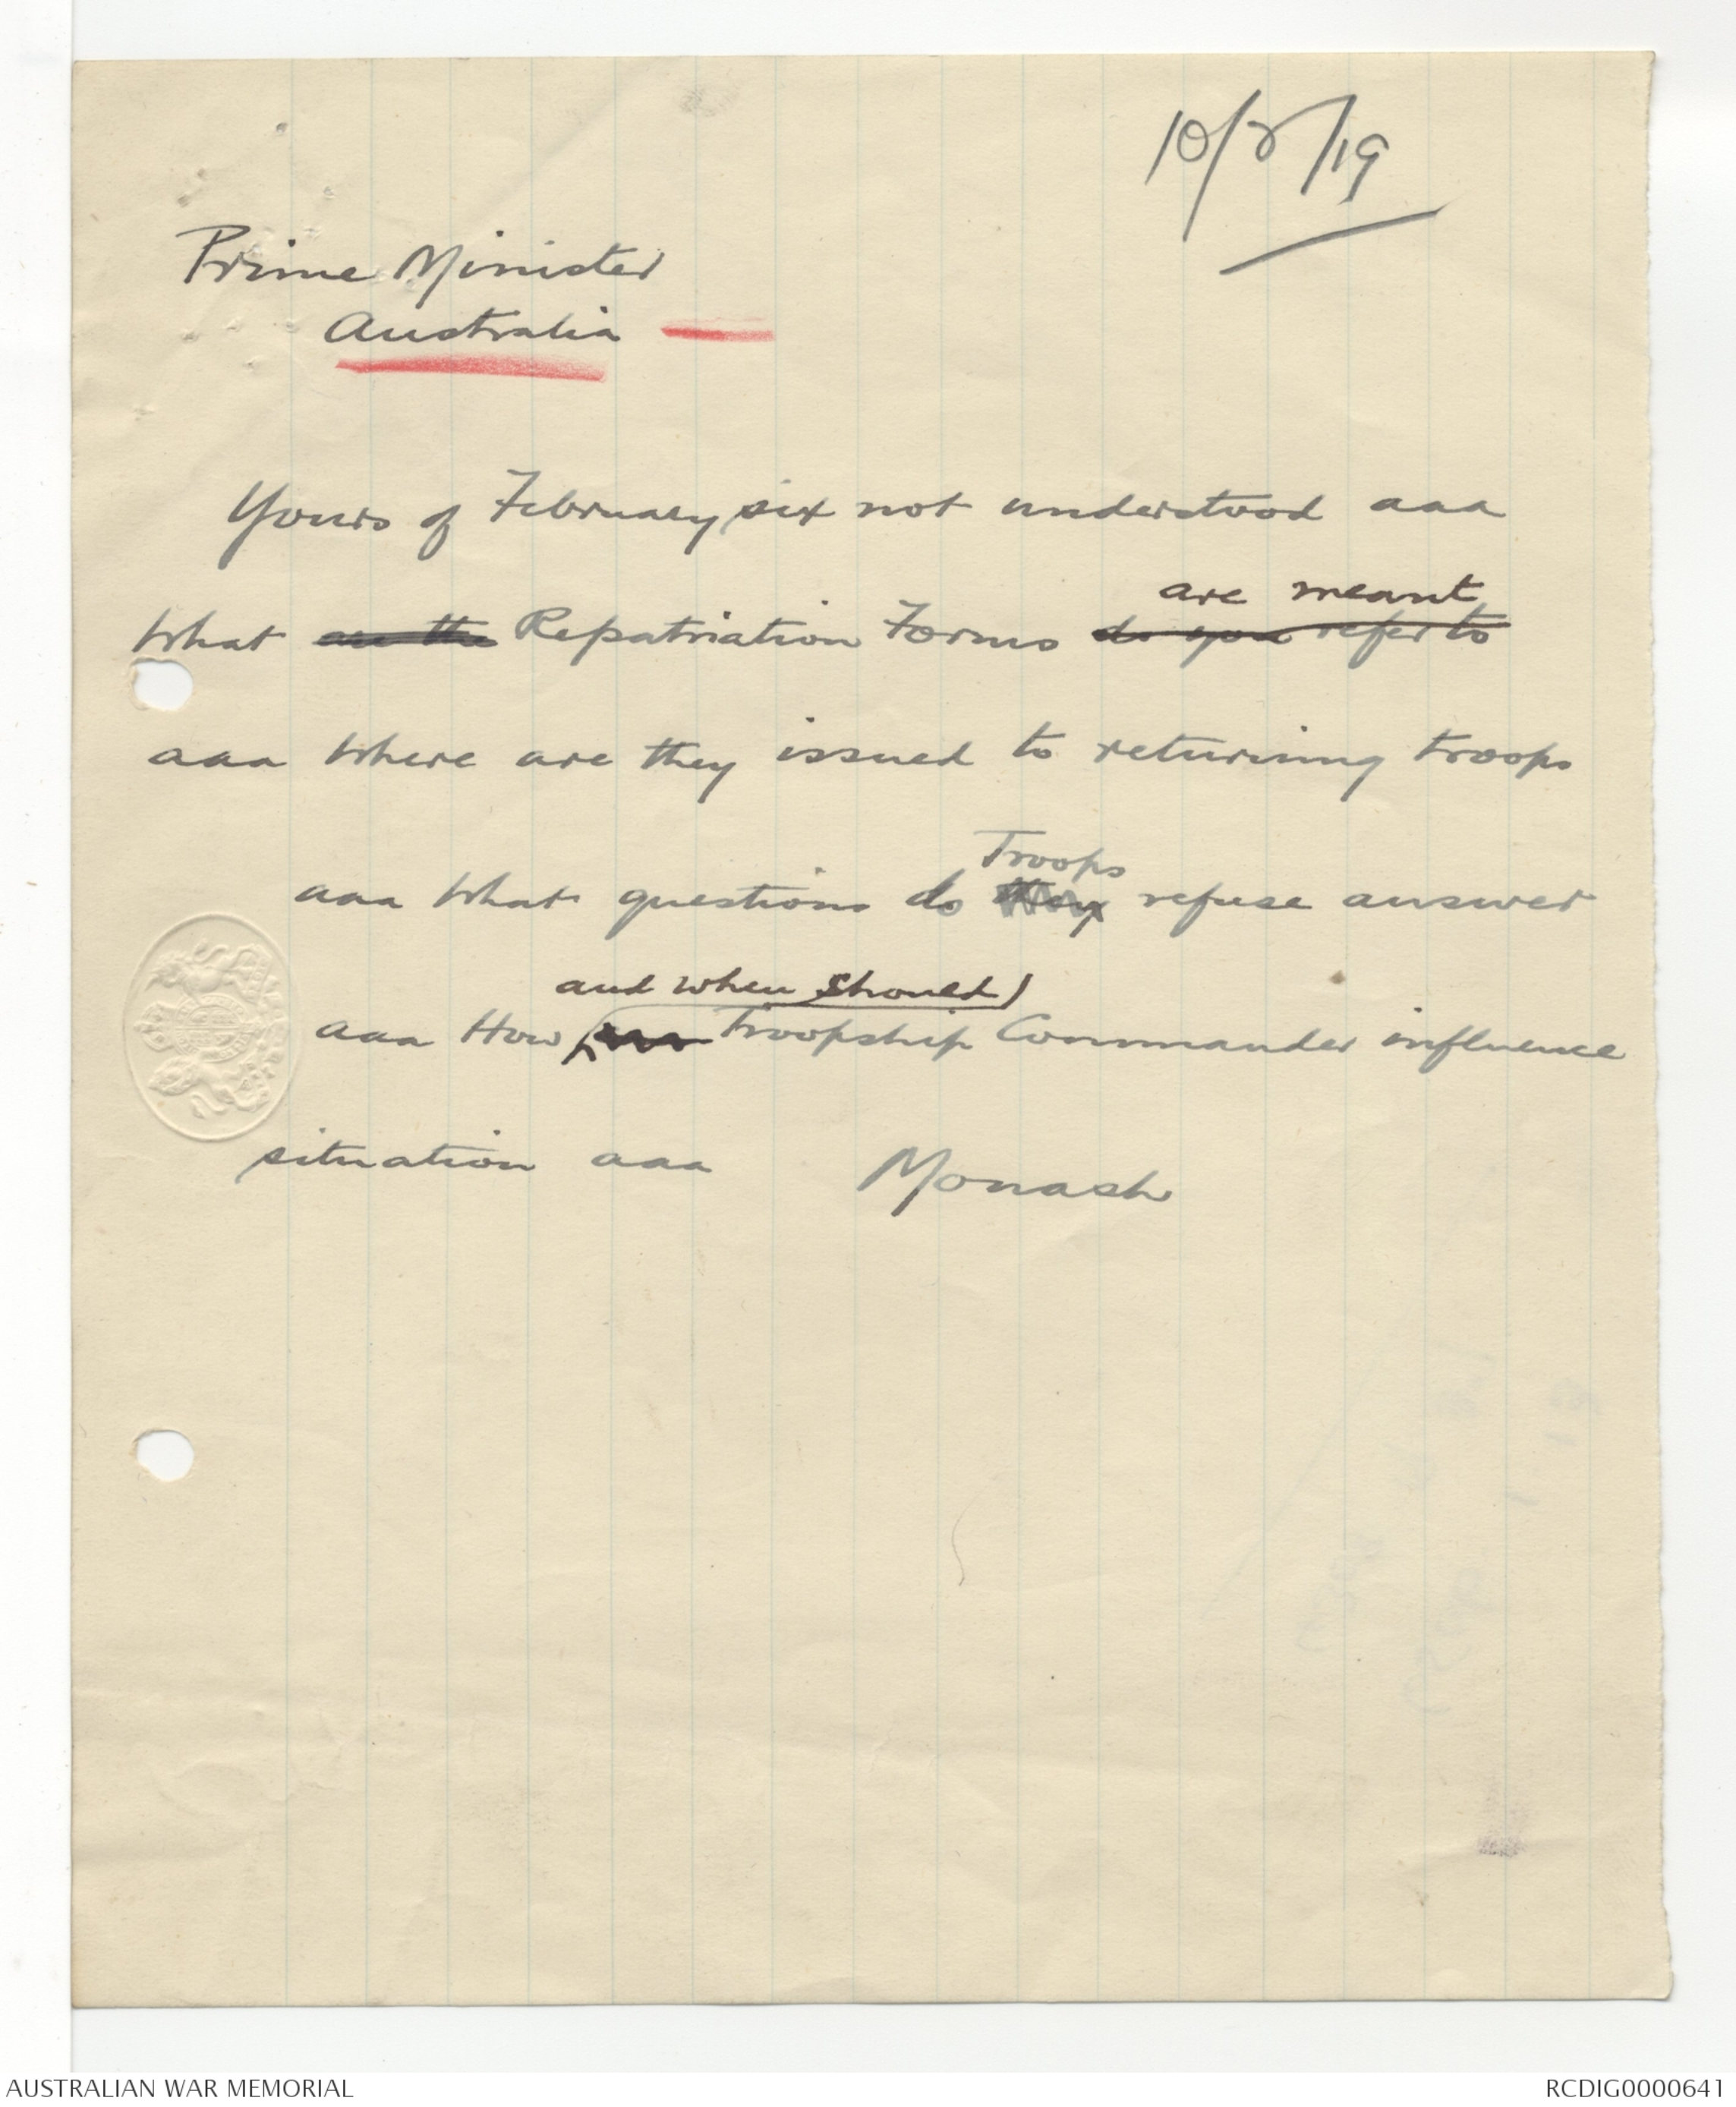 10/2/19
Prime Minister
Australia —
Yours of February six not understood aaa
are meant
What are the Repatriation Forms do you refer to
aaa Where are they issued to returning troops
Troops
aaa What questions do they refuse answer
and when should
aaa How Troopship Commander influence
situation aaa Monash
AUSTRALIAN WAR MEMORIAL
RCDIG0000641